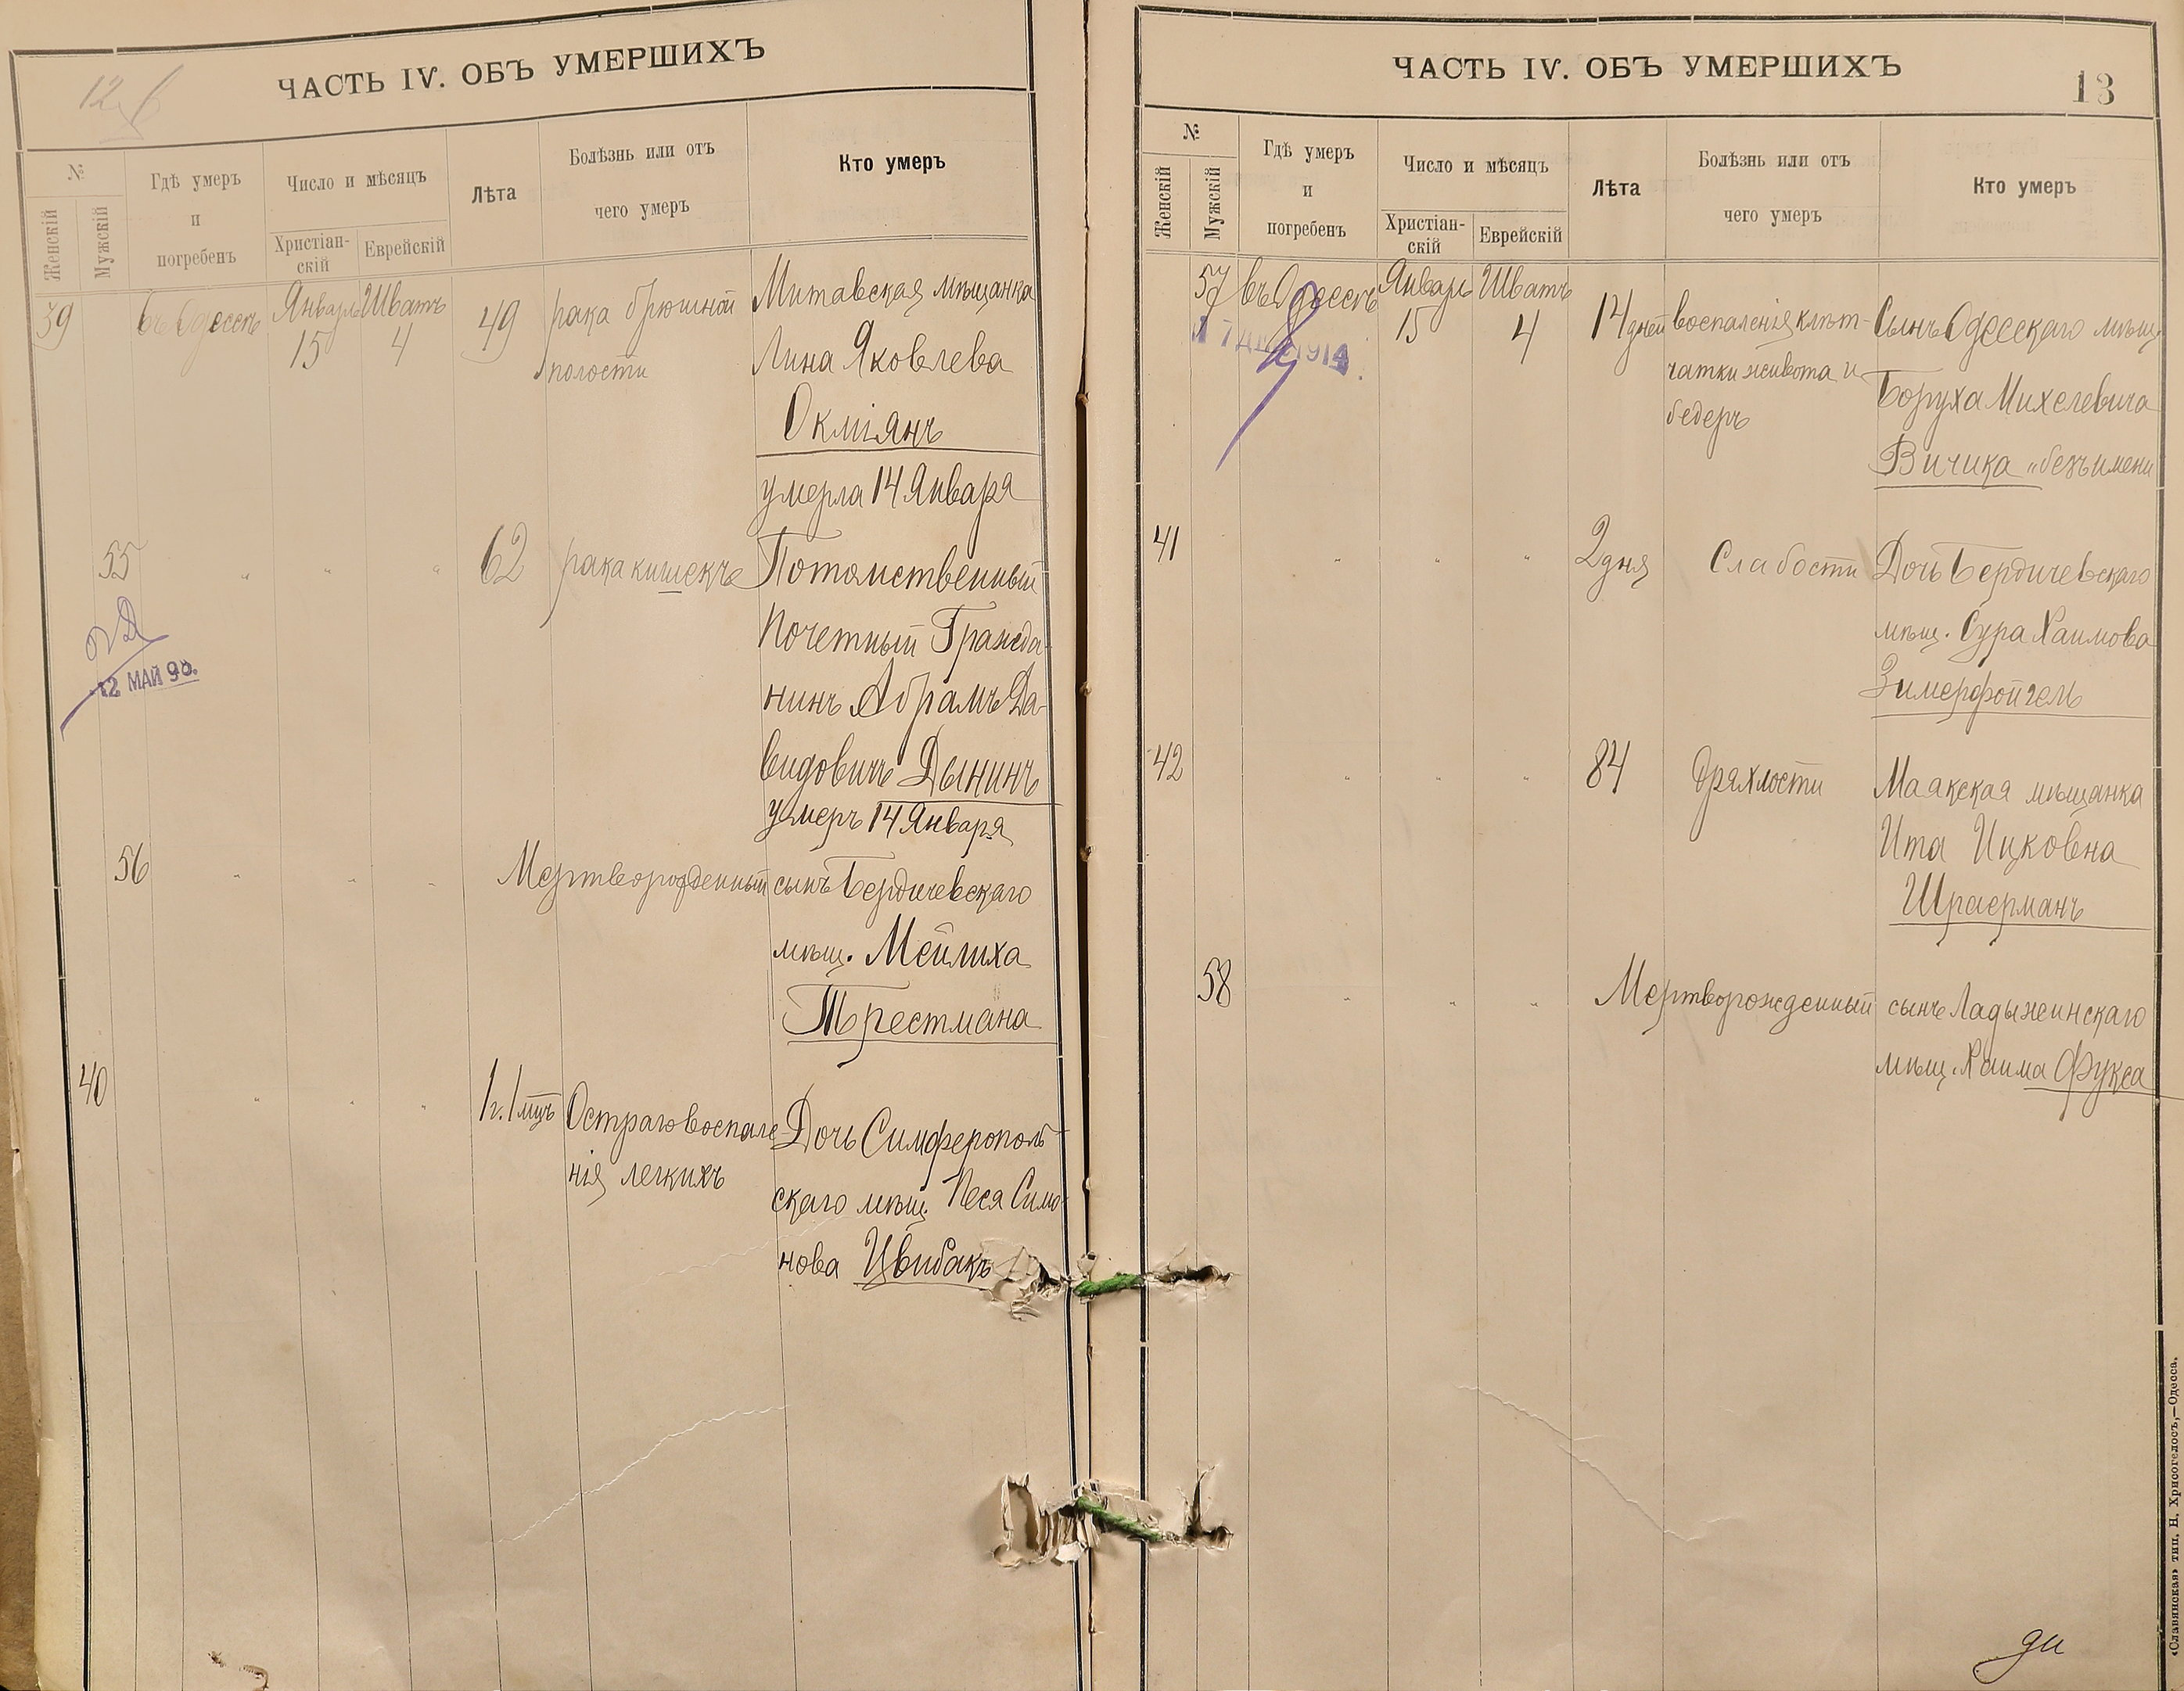 12 б
ЧАСТЬ IV. ОБЪ УМЕРШИХЪ
№
Женскій
Мужскій
Гдѣ умеръ
и
погребенъ
Число и мѣсяцъ
Христіан-
скій
Еврейскій
Лѣта
Болѣзнь или отъ
чего умеръ
Кто умеръ
39
въ Одессѣ
Январь
15
Шватъ
4
49
рака брюшной
полости
Митавская мѣщанка
Лина Яковлева
Окміянъ
умерла 14 Января
55
12 МАЙ 9
"
"
"
62
рака кишекъ
Потомственный
Почетный Гражда-
нинъ Абрамъ Да-
видовичъ Дынинъ
умеръ 14 Января
56
"
"
"
Мертворожденный
сынъ Бердичевскаго
мѣщ. Мейлиха
Трестмана
40
"
"
"
1 г. 1 мцъ
Остраго воспале-
нія легкихъ
Дочь Симферополь-
скаго мѣщ. Песя Симо-
нова Цвибакъ
ЧАСТЬ IV. ОБЪ УМЕРШИХЪ
13
№
Женскій
Мужскій
Гдѣ умеръ
и
погребенъ
Число и мѣсяцъ
Христіан-
скій
Еврейскій
Лѣта
Болѣзнь или отъ
чего умеръ
Кто умеръ
57
въ Одессѣ
17 ДЕК 1914
Январь
15
Шватъ
4
14 дней
воспаленія клѣт-
чатки живота и
бедеръ
Сынъ Одесскаго мѣщ.
Боруха Михелевича
Вичика „безъ имени
41
"
"
"
2 дня
Слабости
Дочь Бердичевскаго
мѣщ. Сура Хаимова
Зимерфойгель
42
"
"
"
84
дряхлости
Маякская мѣщанка
Ита Ицковна
Шраерманъ
58
"
"
"
Мертворожденный
сынъ Ладыжинскаго
мѣщ. Хаима Фукса
ди
«Славянская» тип. Н. Хрисогелосъ,—Одесса.